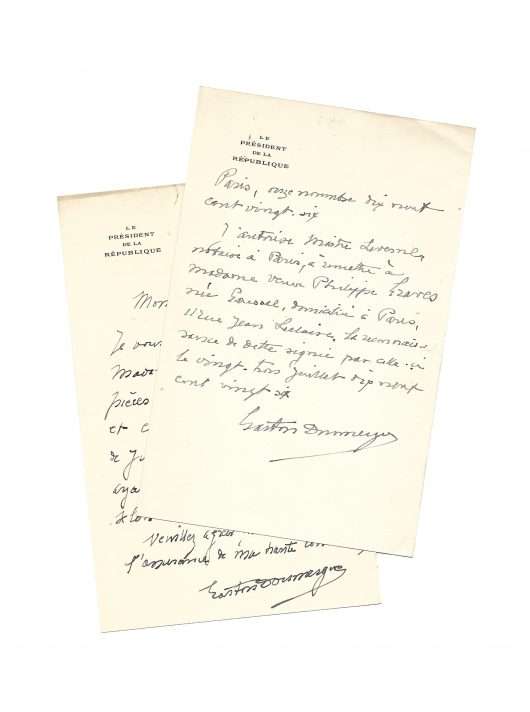 LE
PRÉSIDENT
DE LA
RÉPUBLIQUE
Paris, onze novembre dix neuf
cent vingt-six
J'autorise Maître
notaire à Paris, à remettre à
madame veuve Philippe
née domiciliée à Paris,
11 rue Jean Leclaire, la reconnais-
sance de dette signée par celle-ci
le vingt-trois juillet dix neuf
cent vingt six
Gaston Doumergue
LE
PRÉSIDENT
DE LA
RÉPUBLIQUE
Je
pièces
et
de
Veuillez
l'assurance de ma haute
Gaston Doumergue